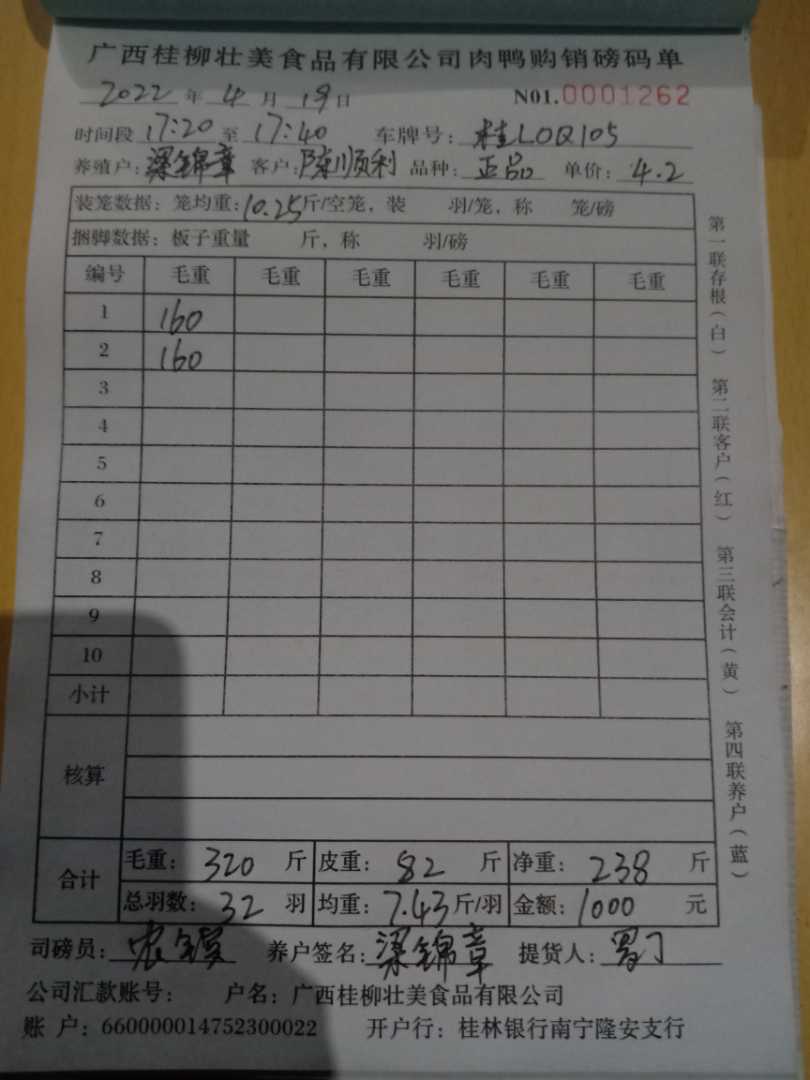 广西桂柳壮美食品有限公司肉鸭购销磅码单
2022 年 4 月 19 日 N01.0001262
时间段 17:20 至 17:40 车牌号: 桂L0Q105
养殖户: 梁锦章 客户: 陈顺利 品种: 正品 单价: 4.2
装笼数据: 笼均重: 10.25 斤/空笼, 装 羽/笼, 称 笼/磅
捆脚数据: 板子重量 斤, 称 羽/磅
编号 毛重 毛重 毛重 毛重 毛重 毛重
1 160
2 160
3
4
5
6
7
8
9
10
小计
核算
合计 毛重: 320 斤 皮重: 82 斤 净重: 238 斤
总羽数: 32 羽 均重: 7.43 斤/羽 金额: 1000 元
司磅员: 养户签名: 梁锦章 提货人:
公司汇款账号: 户名: 广西桂柳壮美食品有限公司
账 户: 660000014752300022 开户行: 桂林银行南宁隆安支行
第一联存根(白) 第二联客户(红) 第三联会计(黄) 第四联养户(蓝)